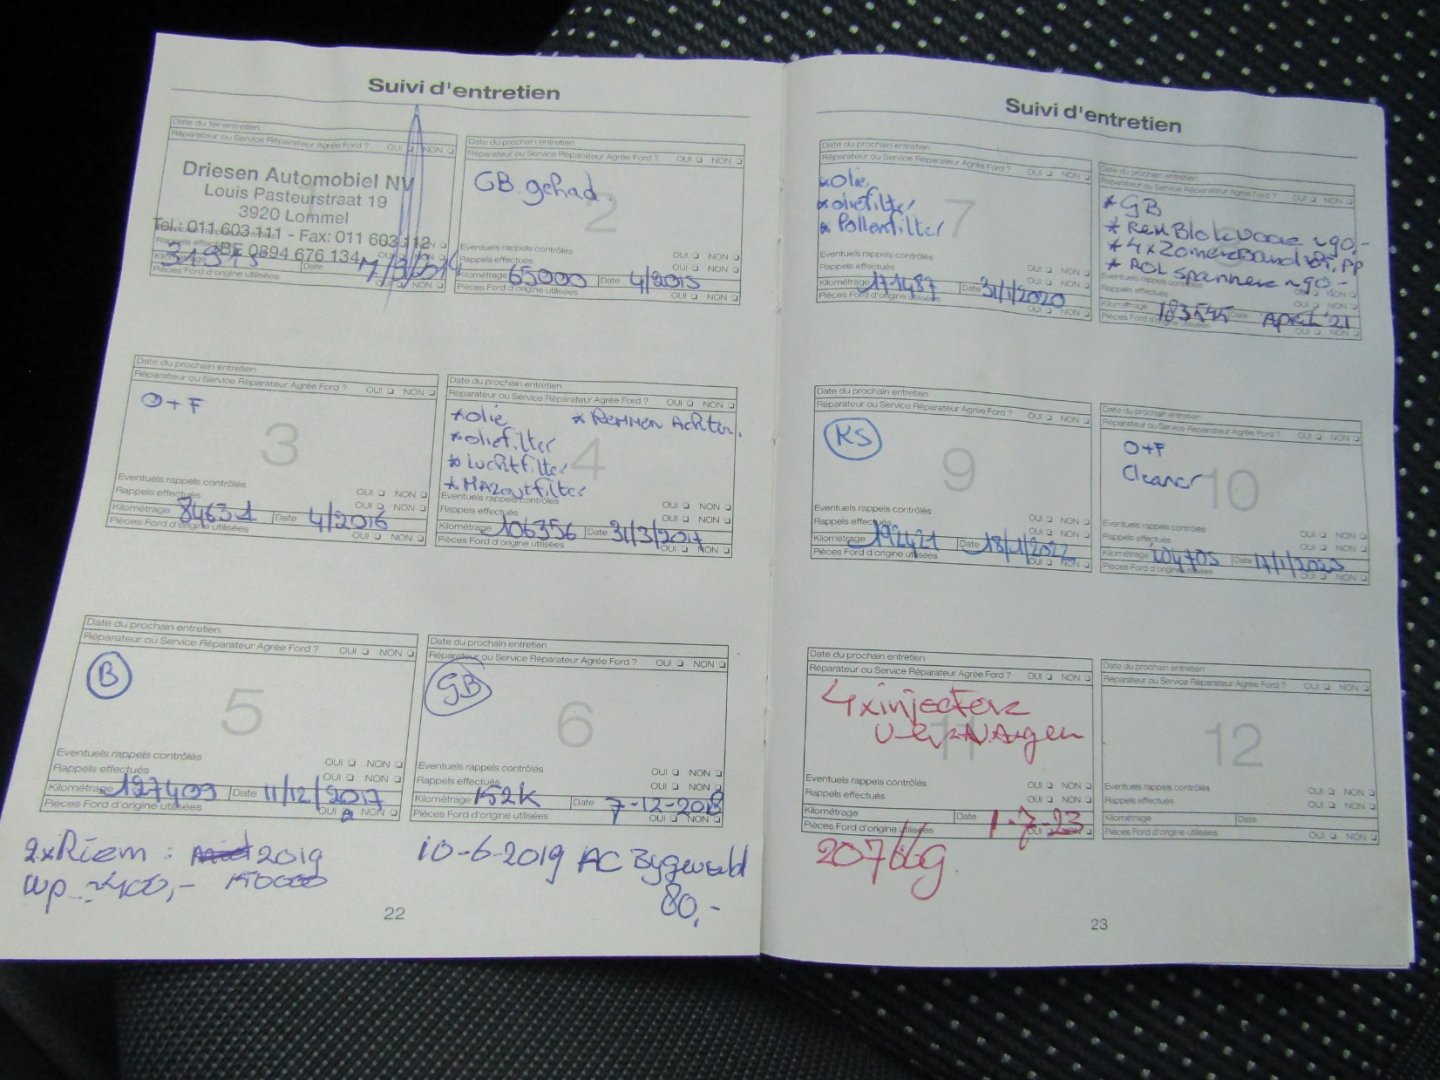 Suivi d'entretien
Date du 1er entretien
Réparateur ou Service Réparateur Agrée Ford ? OUI NON
Driesen Automobiel NV
Louis Pasteurstraat 19
3920 Lommel
Tel.: 011 603 111 - Fax: 011 603 112
BE 0894 676 134
Rappels effectués OUI NON
Kilométrage Date
Pièces Ford d'origine utilisées OUI NON
Date du prochain entretien
Réparateur ou Service Réparateur Agrée Ford ? OUI NON
2
GB. gehad.
Eventuels rappels contrôlés OUI NON
Rappels effectués OUI NON
Kilométrage 65000 Date 4/2015
Pièces Ford d'origine utilisées OUI NON
Date du prochain entretien
Réparateur ou Service Réparateur Agrée Ford ? OUI NON
O+F
3
Eventuels rappels contrôlés OUI NON
Rappels effectués OUI NON
Kilométrage 84631 Date 4/2016
Pièces Ford d'origine utilisées OUI NON
Date du prochain entretien
Réparateur ou Service Réparateur Agrée Ford ? OUI NON
*olie *Remmen Achter.
*oliefilter
*luchtfilter 4
*MAZoutfilter
Eventuels rappels contrôlés OUI NON
Rappels effectués OUI NON
Kilométrage 106356 Date 31/3/2017
Pièces Ford d'origine utilisées OUI NON
Date du prochain entretien
Réparateur ou Service Réparateur Agrée Ford ? OUI NON
B
5
Eventuels rappels contrôlés OUI NON
Rappels effectués OUI NON
Kilométrage 127409 Date 11/12/2017
Pièces Ford d'origine utilisées OUI NON
Date du prochain entretien
Réparateur ou Service Réparateur Agrée Ford ? OUI NON
GB
6
Eventuels rappels contrôlés OUI NON
Rappels effectués OUI NON
Kilométrage 152K Date 7-12-2018
Pièces Ford d'origine utilisées OUI NON
2xRiem : 2019
wp ~400,- 150000
10-6-2019 AC Bijgevuld
80,-
22
Suivi d'entretien
Date du prochain entretien
Réparateur ou Service Réparateur Agrée Ford ? OUI NON
*olie
*oliefilter 7
*Pollenfilter
Eventuels rappels contrôlés OUI NON
Rappels effectués OUI NON
Kilométrage 171487 Date 31/1/2020
Pièces Ford d'origine utilisées OUI NON
Date du prochain entretien
Réparateur ou Service Réparateur Agrée Ford ? OUI NON
* GB
* RemBlokVoor ~90,-
* 4xZomerband
* spanner ~90,-
Eventuels rappels contrôlés OUI NON
Rappels effectués OUI NON
Kilométrage 183545 Date April '21
Pièces Ford d'origine utilisées OUI NON
Date du prochain entretien
Réparateur ou Service Réparateur Agrée Ford ? OUI NON
KS
9
Eventuels rappels contrôlés OUI NON
Rappels effectués OUI NON
Kilométrage 192421 Date 18/1/2022
Pièces Ford d'origine utilisées OUI NON
Date du prochain entretien
Réparateur ou Service Réparateur Agrée Ford ? OUI NON
O+F
Cleaner 10
Eventuels rappels contrôlés OUI NON
Rappels effectués OUI NON
Kilométrage 204705 Date 17/1/2023
Pièces Ford d'origine utilisées OUI NON
Date du prochain entretien
Réparateur ou Service Réparateur Agrée Ford ? OUI NON
4xinjectors
11
Eventuels rappels contrôlés OUI NON
Rappels effectués OUI NON
Kilométrage Date 1-7-23
Pièces Ford d'origine utilisées OUI NON
Date du prochain entretien
Réparateur ou Service Réparateur Agrée Ford ? OUI NON
12
Eventuels rappels contrôlés OUI NON
Rappels effectués OUI NON
Kilométrage Date
Pièces Ford d'origine utilisées OUI NON
23